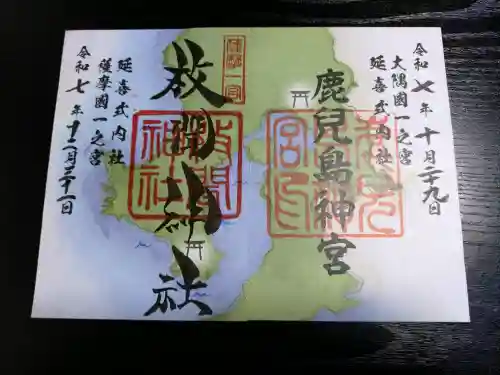 令和七年十月二十九日
大隅國一之宮
延喜式内社
鹿兒島神宮
薩摩一宮
枚聞神社
枚聞神社
延喜式内社
薩摩國一之宮
令和七年十二月三十一日